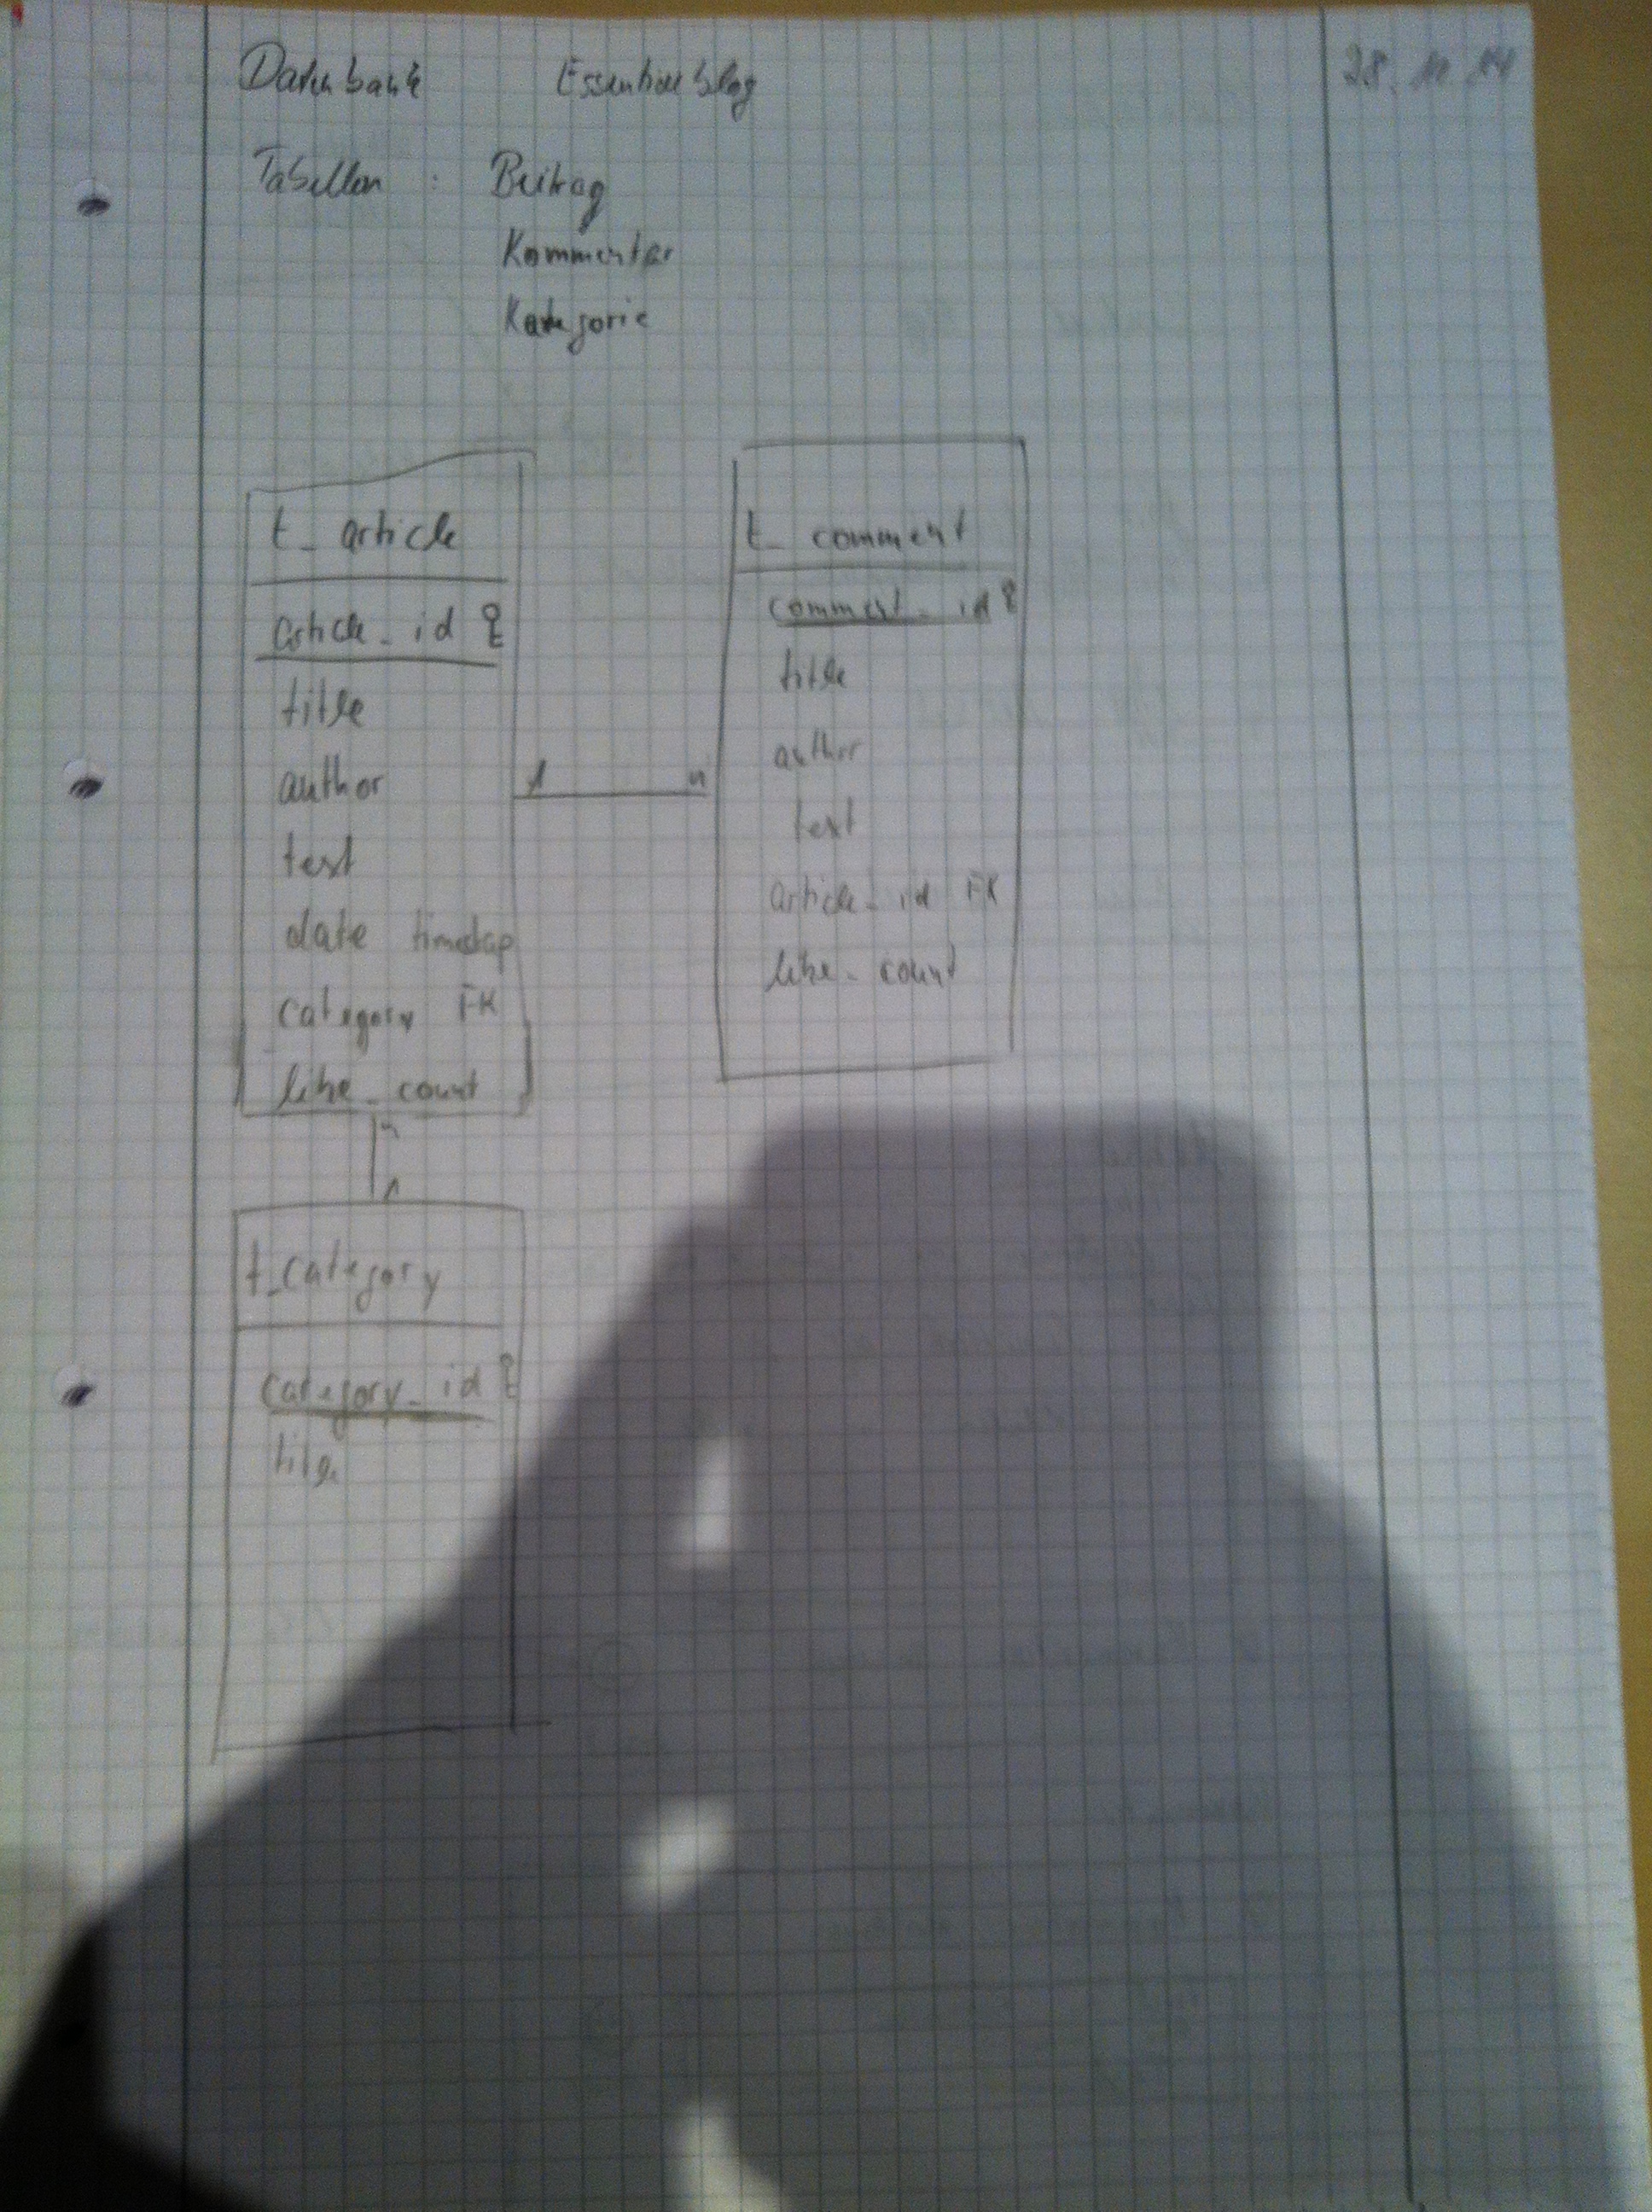 Datenbank Essentionsblog 28.11.14
Tabellen : Beitrag
Kommentar
Kategorie
t_article
article_id
title
author
text
date timestap
category FK
like_count
1 n
t_comment
comment_id
title
author
text
article_id FK
like_count
n
1
t_category
category_id
title